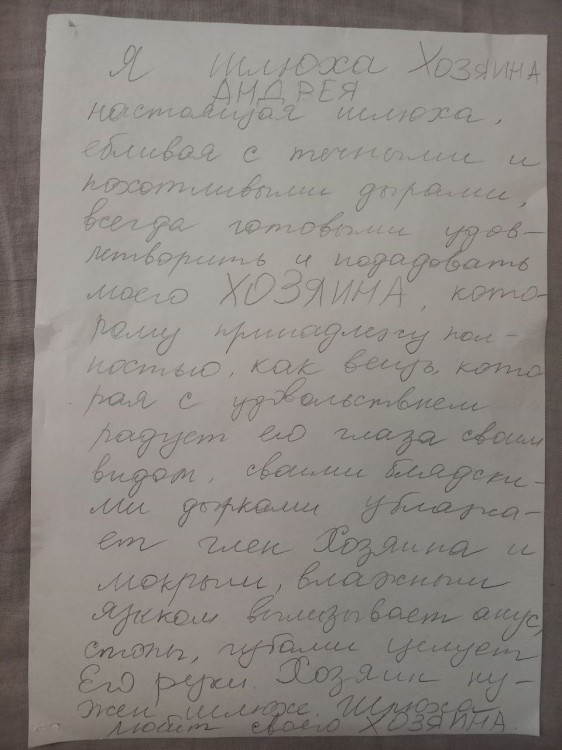 Я шлюха ХОЗЯИНА
АНДРЕЯ
настоящая шлюха,
ебливая с течными и
похотливыми дырами,
всегда готовыми удов-
летворить и подадовать
моего ХОЗЯИНА, кото-
рому принадлежу пол-
ностью, как вещь, кото
рая с удвольствием
радует его глаза своим
видом, своими блядски-
ми дырками ублажа-
ет член Хозяина и
мокрым, влажным
языком вылизывает анус,
стопы, губами целует
Его руки. Хозяин ну-
жен шлюхе. Шлюха
любит своего ХОЗЯИНА